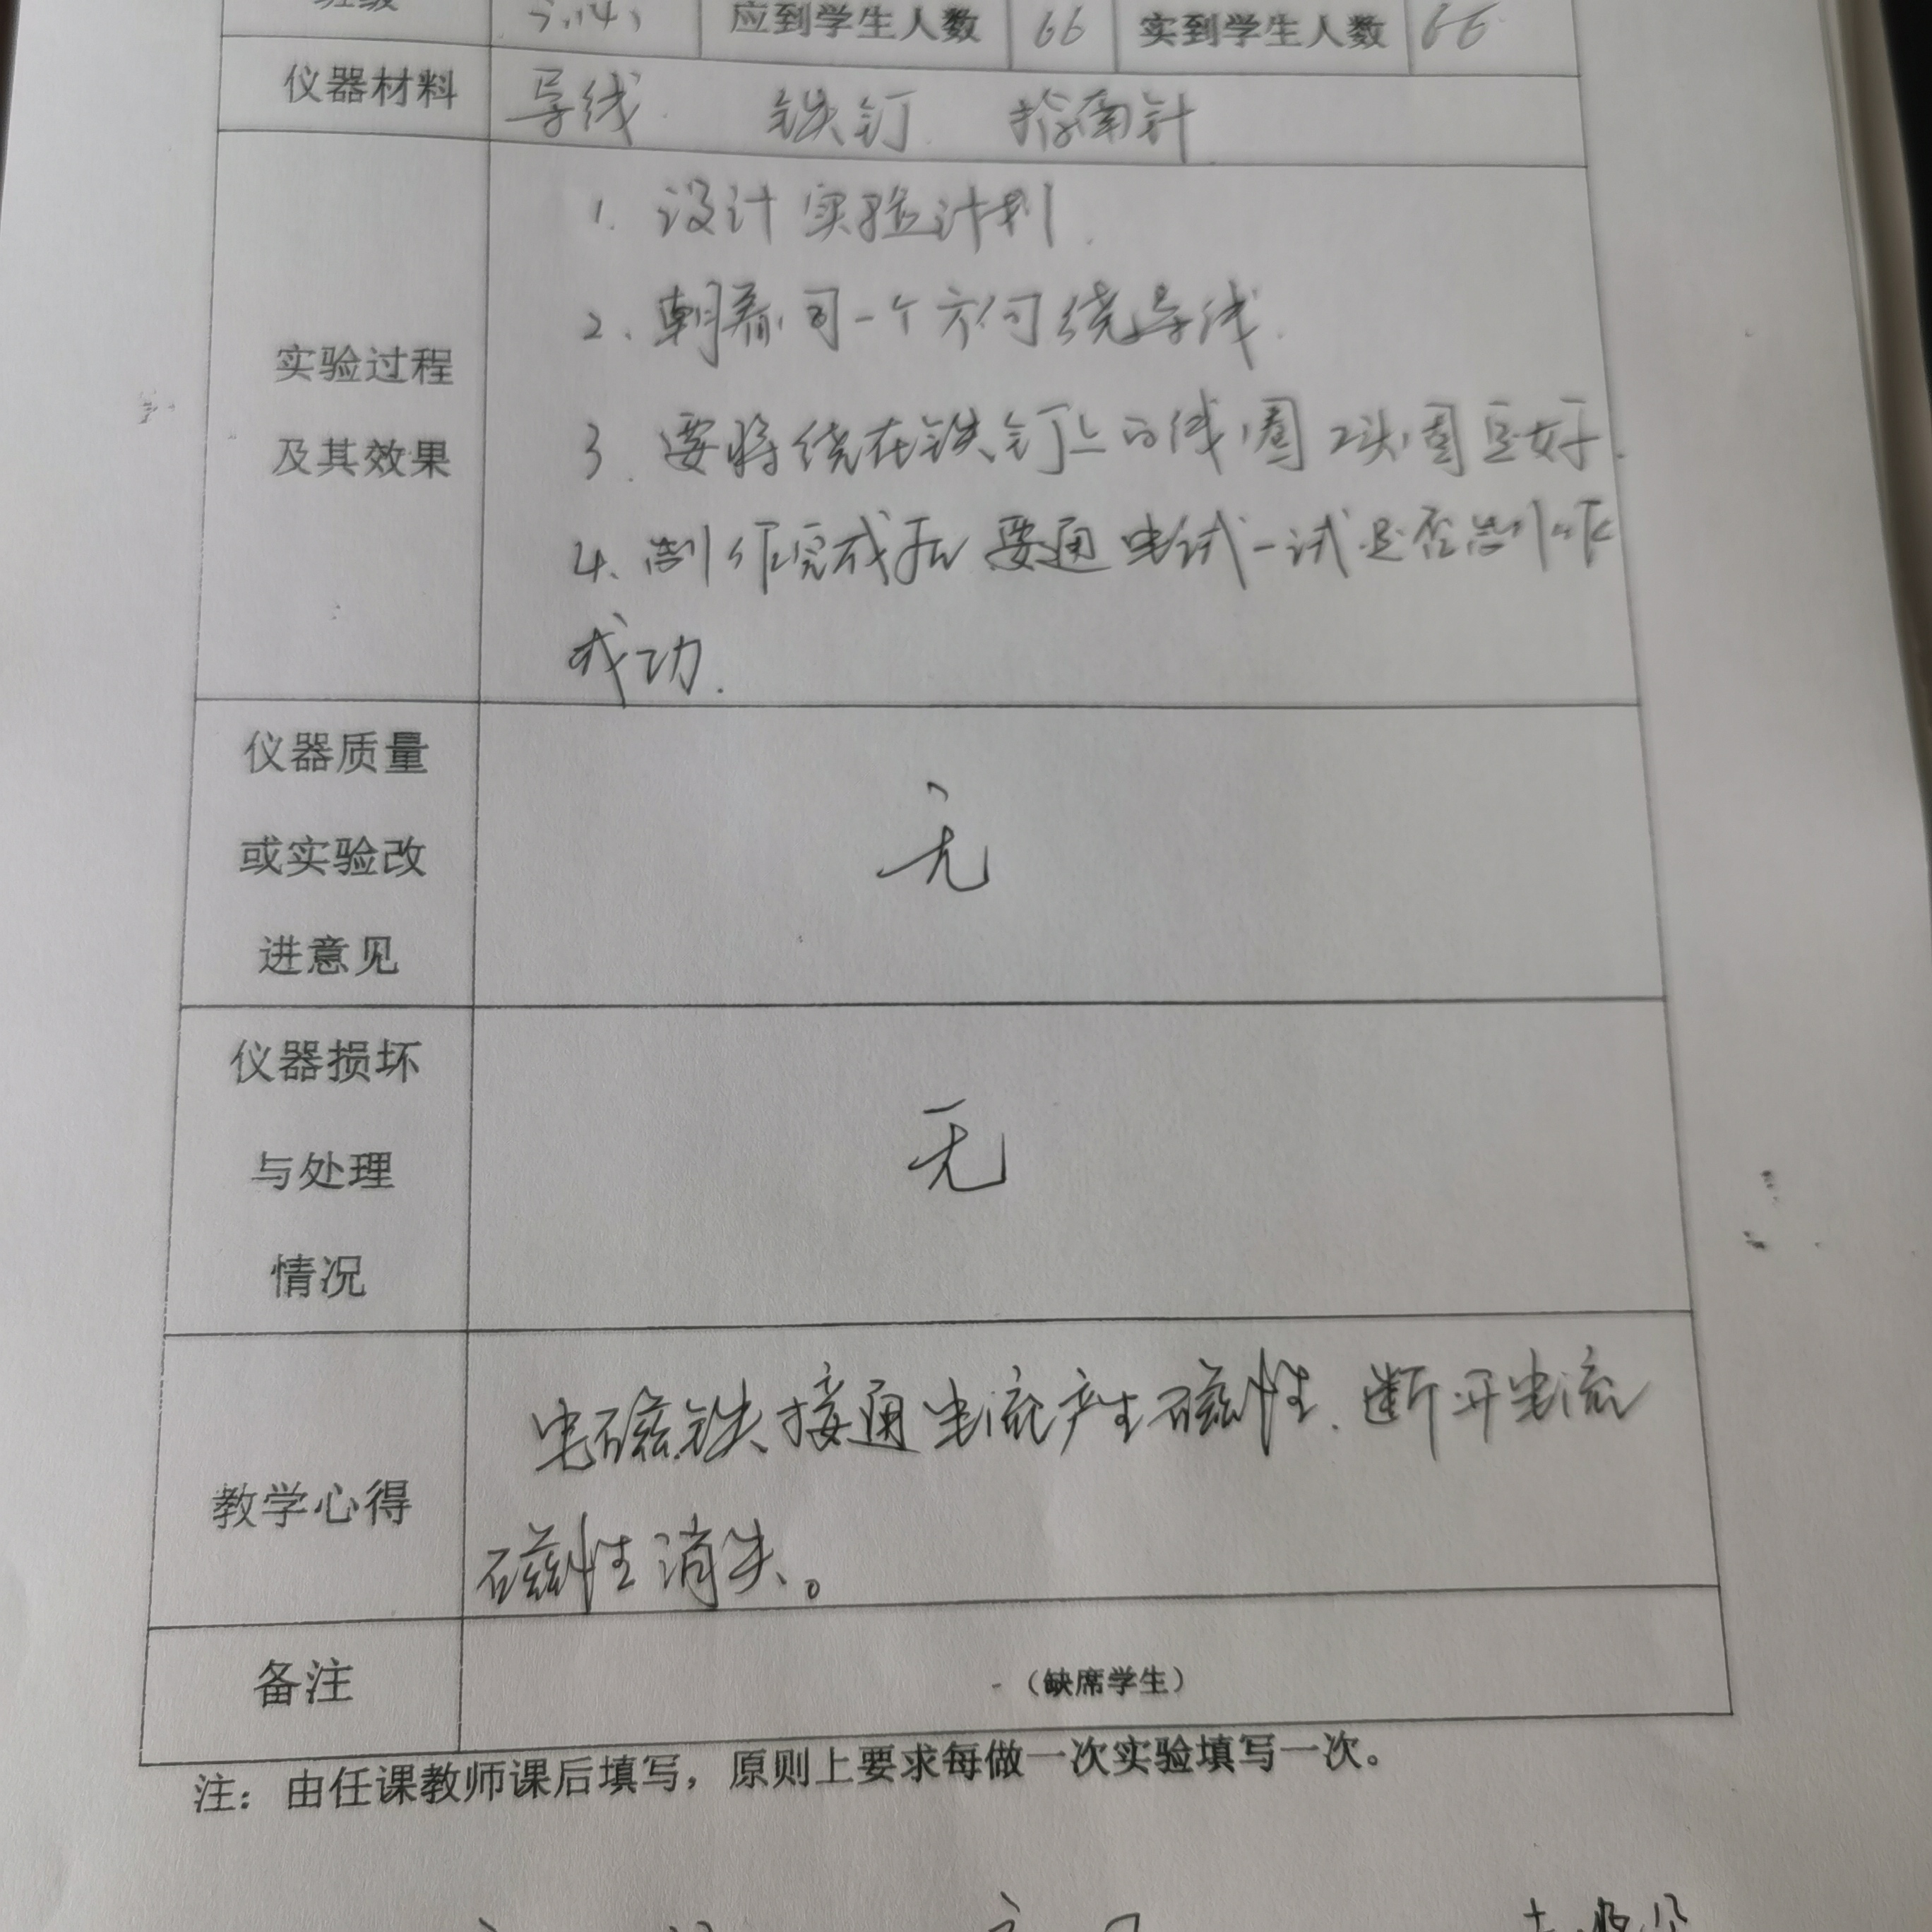 班级 应到学生人数 66 实到学生人数 66
仪器材料 导线 铁钉 指南针
1. 设计实验计划.
2、朝着同一个方向绕导线.
实验过程
及其效果
3. 要将绕在铁钉上的线圈2头固定好.
4、制作完成后要通电试一试是否制作
成功.
仪器质量
或实验改
进意见
无
仪器损坏
与处理
情况
无
教学心得
电磁铁接通电流产生磁性.断开电流
磁性消失。
备注 (缺席学生)
注：由任课教师课后填写，原则上要求每做一次实验填写一次。